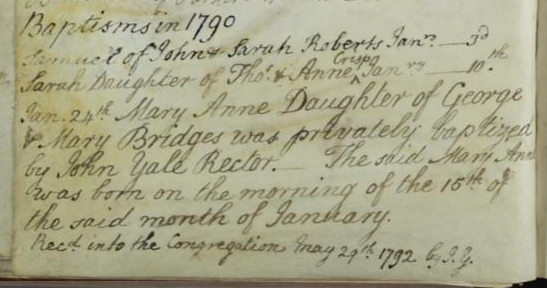 Baptisms in 1790
Samuel of John & Sarah Roberts Janry — 3d
Crispo
Sarah Daughter of Thos. & Anne ^ Janry — 10th
Jan. 24th Mary Anne Daughter of George
& Mary Bridges was privately baptized
by John Yale Rector. — The said Mary Anne
was born on the morning of the 15th of
the said month of January.
Recd. into the Congregation May 29th 1792 by J.Y.